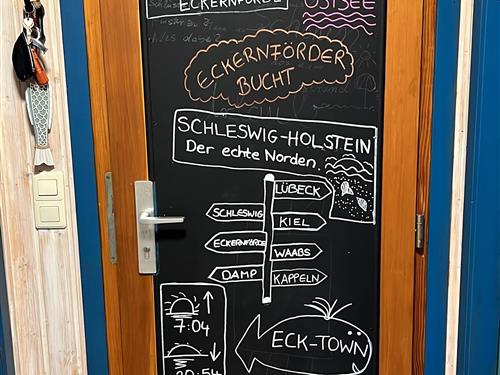 ECKERNFÖRDE
OSTSEE
ECKERNFÖRDER
BUCHT
SCHLESWIG-HOLSTEIN
Der echte Norden.
LÜBECK
SCHLESWIG
KIEL
ECKERNFÖRDE
WAABS
DAMP
KAPPELN
7:04
20:54
ECK-TOWN